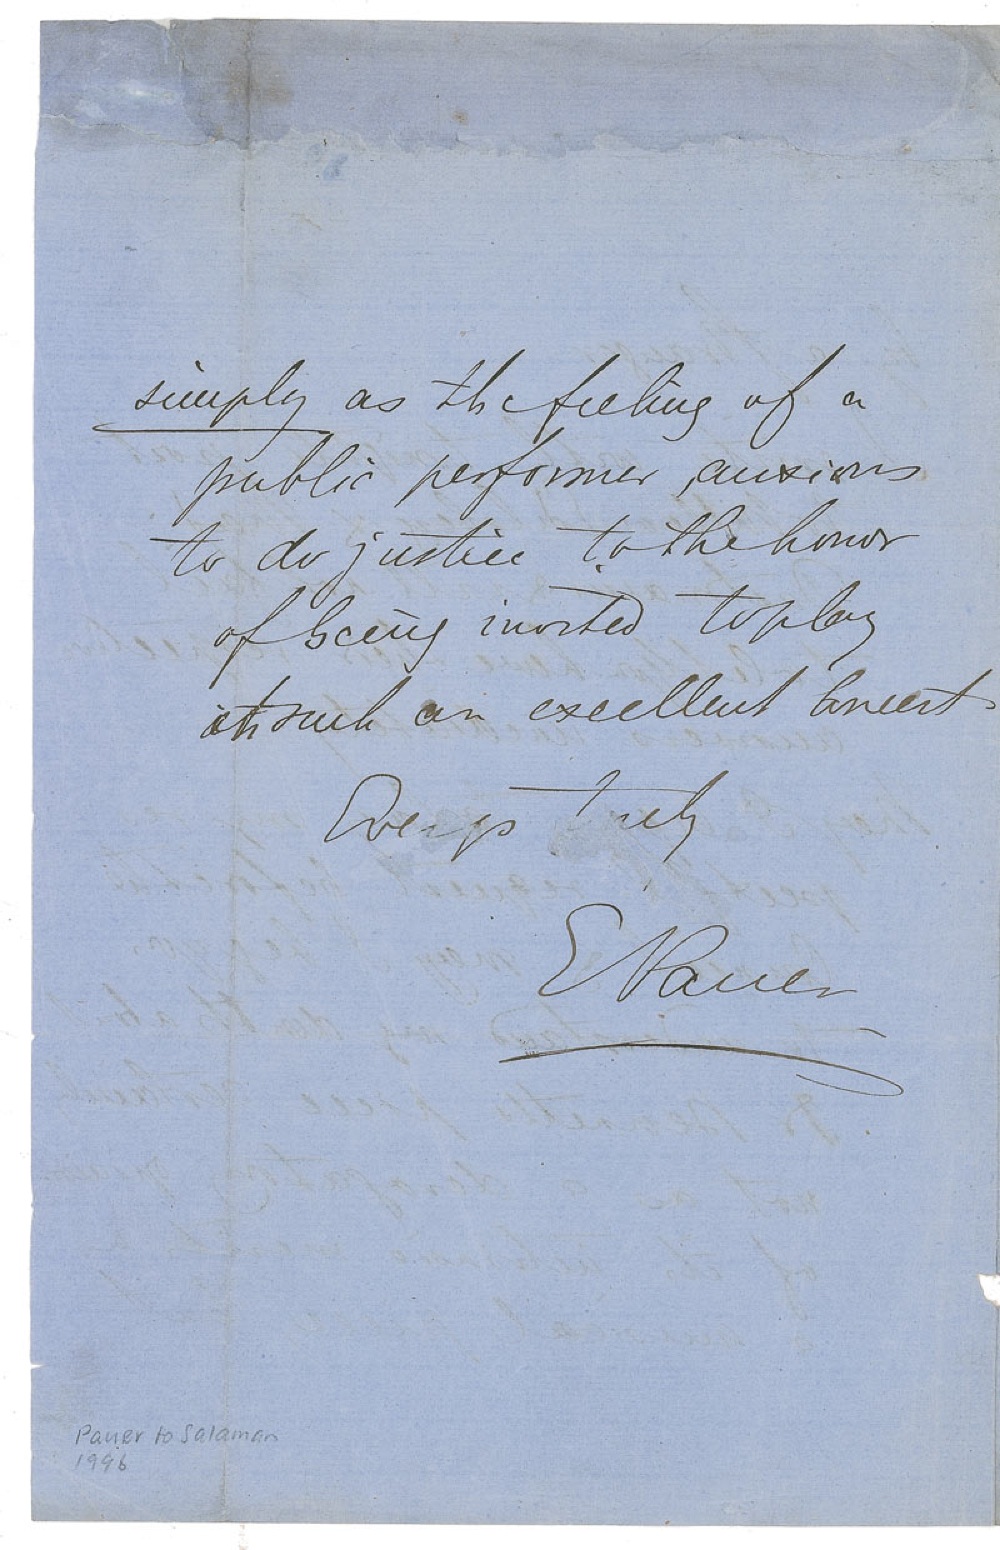 simply as the feeling of a
public performer, anxious
to do justice to the honor
of being invited to play
at such an excellent Concert
Every truly
E Pauer
Pauer to Salaman
1996